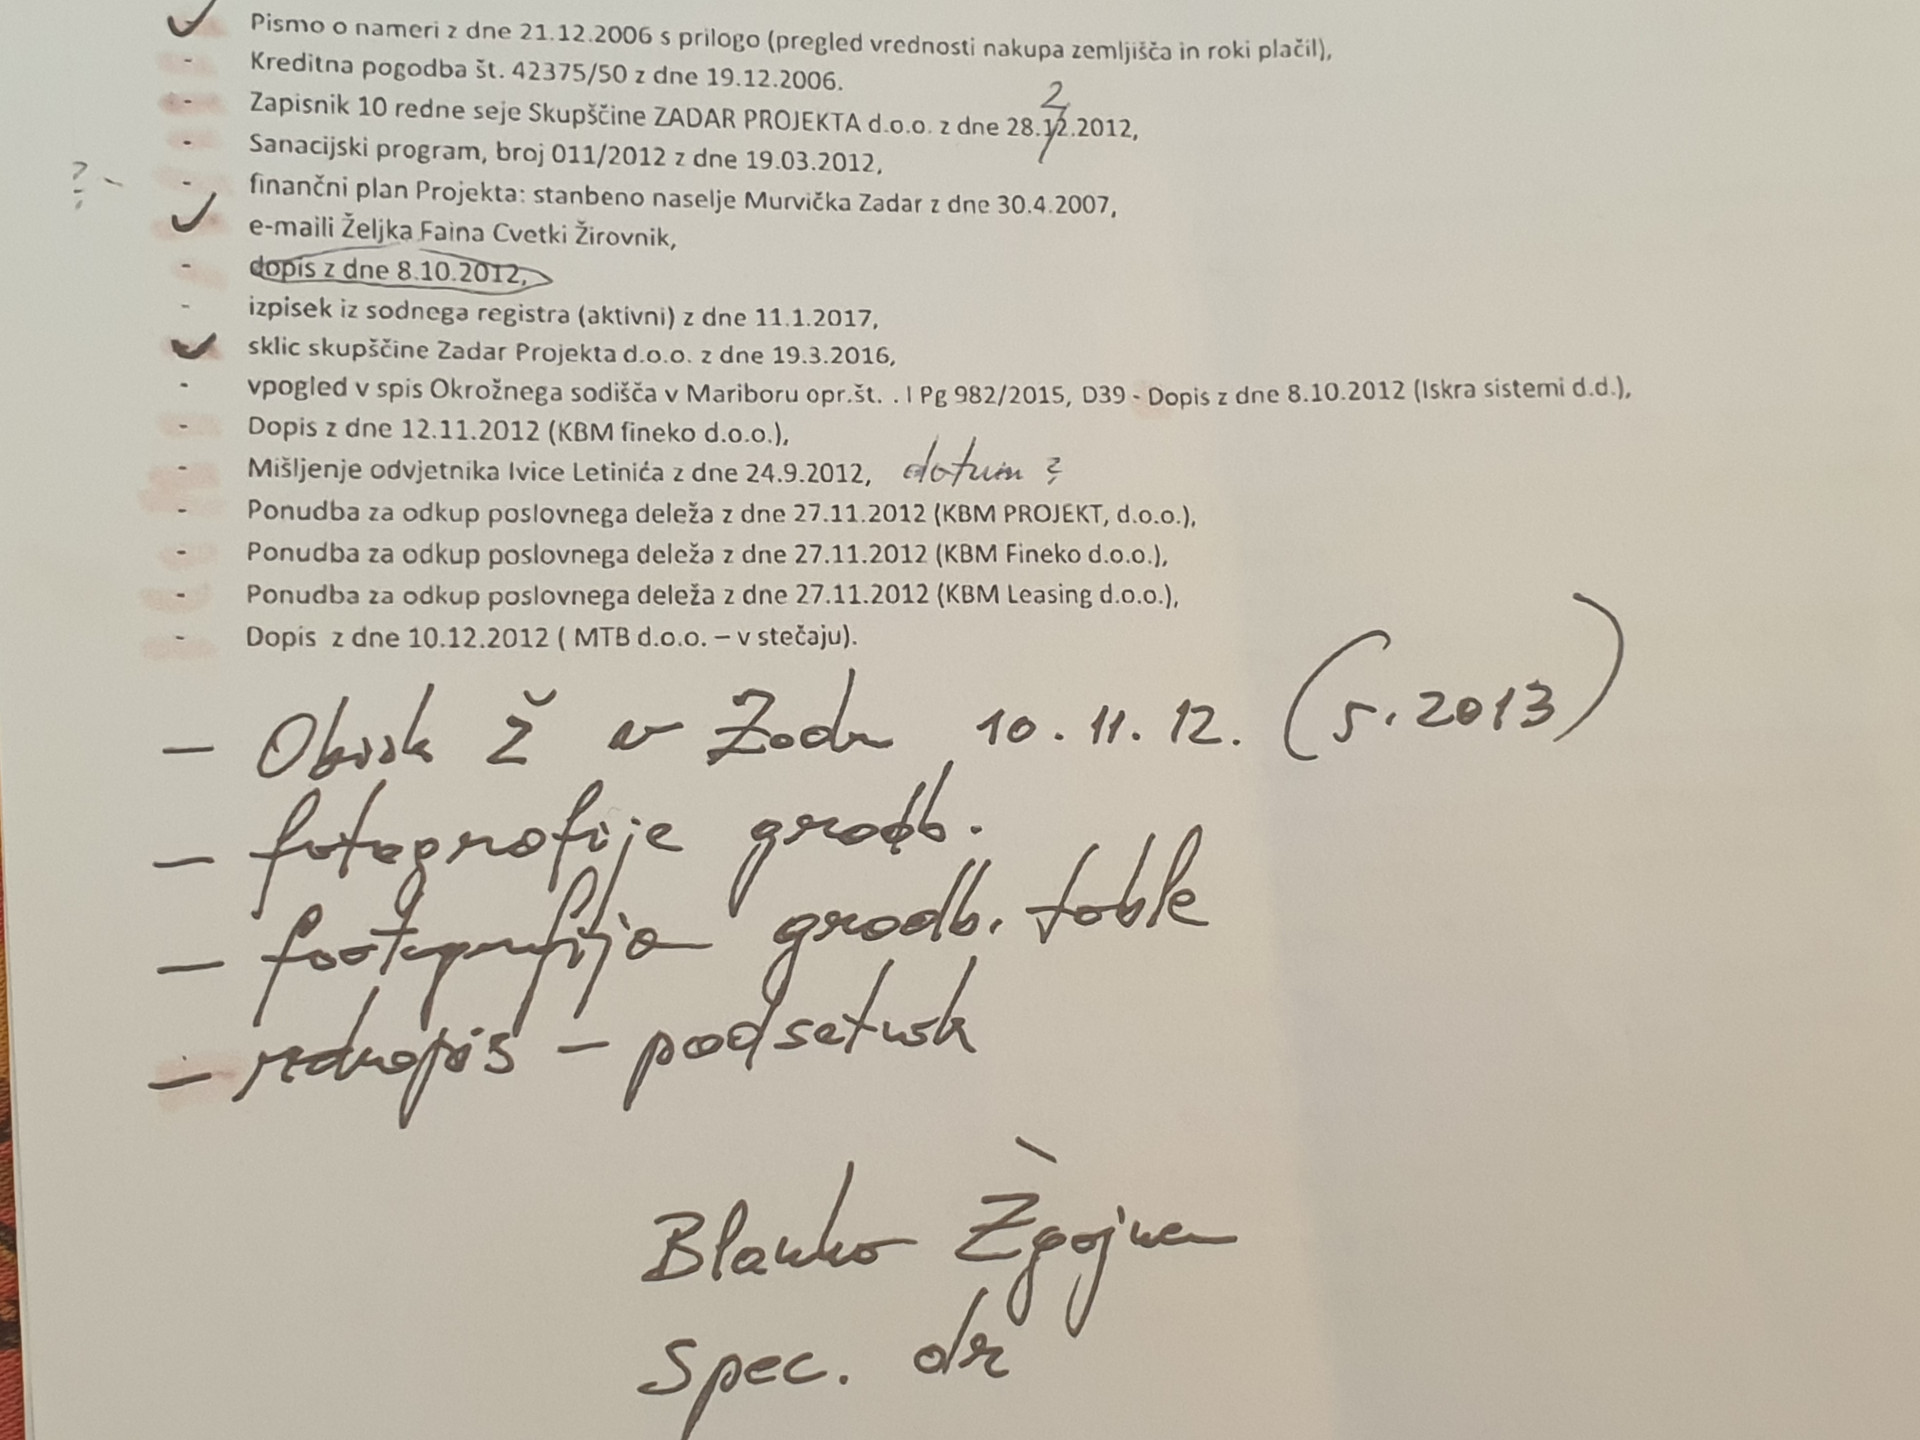 Pismo o nameri z dne 21.12.2006 s prilogo (pregled vrednosti nakupa zemljišča in roki plačil),
- Kreditna pogodba št. 42375/50 z dne 19.12.2006.
2
- Zapisnik 10 redne seje Skupščine ZADAR PROJEKTA d.o.o. z dne 28.12.2012,
- Sanacijski program, broj 011/2012 z dne 19.03.2012,
? - - finančni plan Projekta: stanbeno naselje Murvička Zadar z dne 30.4.2007,
e-maili Željka Faina Cvetki Žirovnik,
- dopis z dne 8.10.2012,
- izpisek iz sodnega registra (aktivni) z dne 11.1.2017,
sklic skupščine Zadar Projekta d.o.o. z dne 19.3.2016,
- vpogled v spis Okrožnega sodišča v Mariboru opr.št. . I Pg 982/2015, D39 - Dopis z dne 8.10.2012 (Iskra sistemi d.d.),
- Dopis z dne 12.11.2012 (KBM fineko d.o.o.),
- Mišljenje odvjetnika Ivice Letinića z dne 24.9.2012, datum ?
- Ponudba za odkup poslovnega deleža z dne 27.11.2012 (KBM PROJEKT, d.o.o.),
- Ponudba za odkup poslovnega deleža z dne 27.11.2012 (KBM Fineko d.o.o.),
- Ponudba za odkup poslovnega deleža z dne 27.11.2012 (KBM Leasing d.o.o.),
- Dopis z dne 10.12.2012 ( MTB d.o.o. – v stečaju).
- Obisk Ž v Zadru 10.11.12. (5.2013)
- fotografije gradb.
- footografija gradb. table
- - podsetnik
Blanko
spec. dr